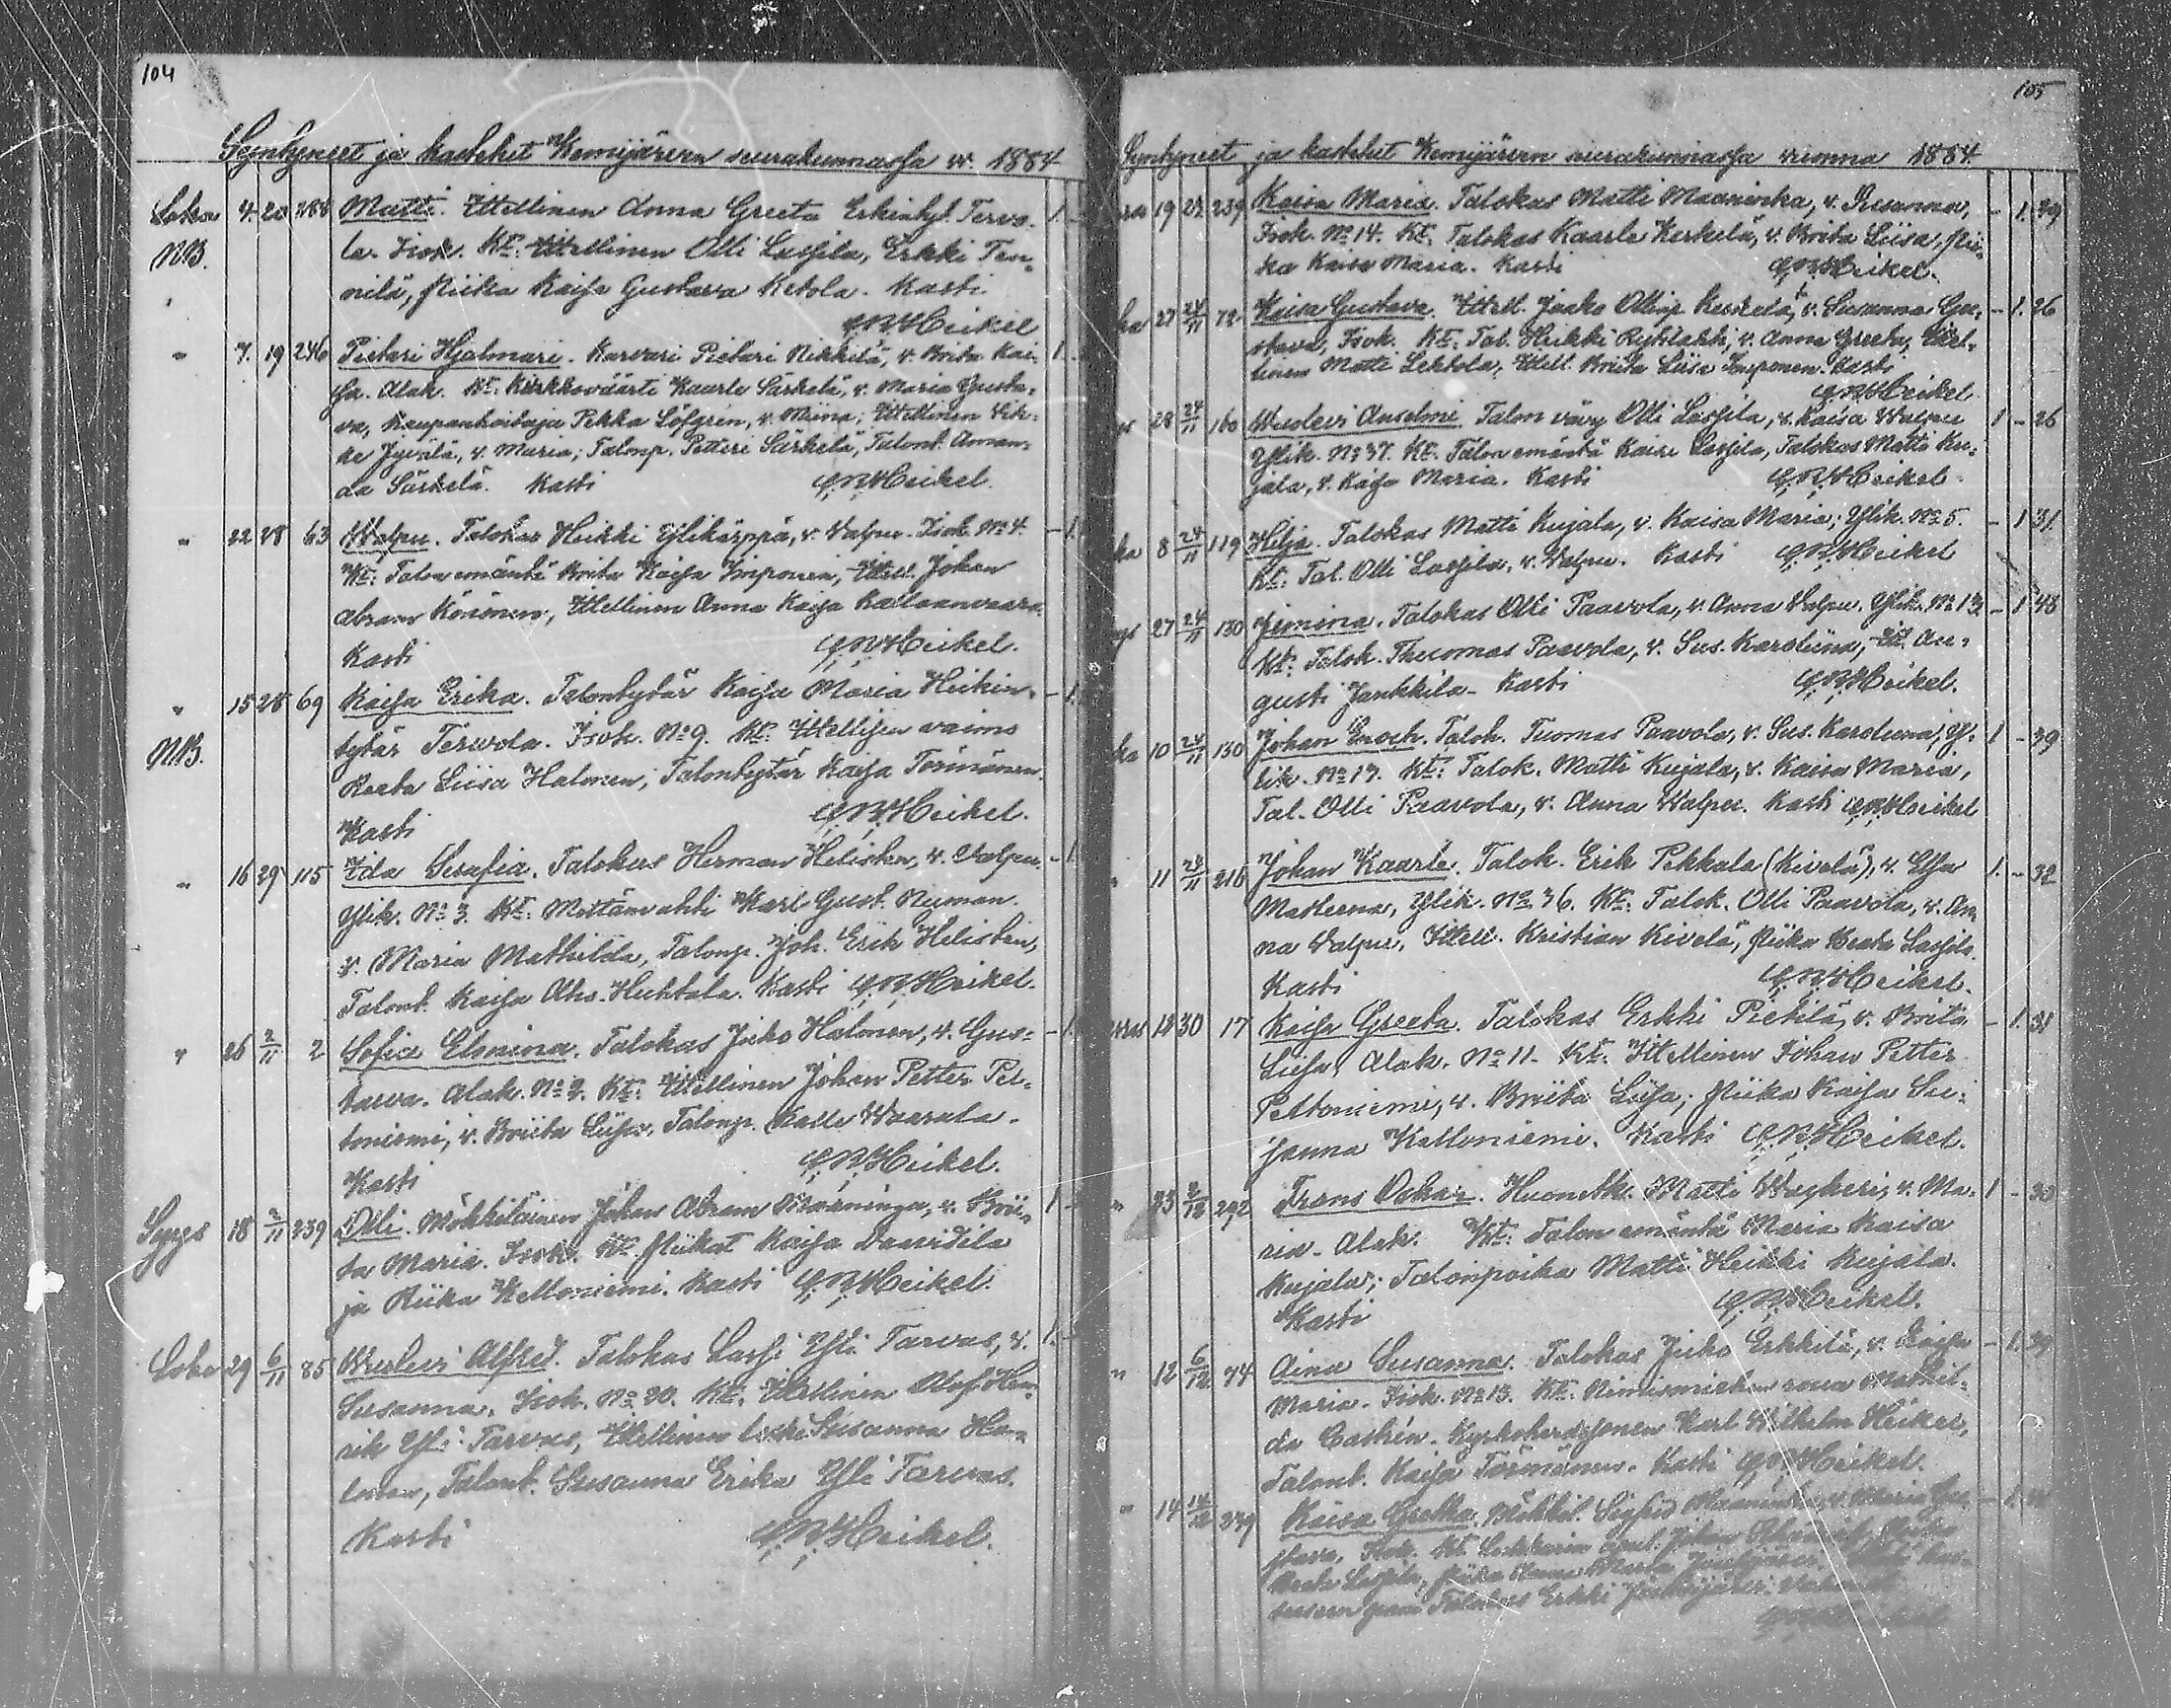 104
Syntyneet ja kastetut Kemijärven seurakunnassa v. 1884
Lokau 4 20 288 Matti. Ittellinen Anna Greeta Erkintyt. Tervo- 1. -
NB. la. Isok. Kt: Ittellinen Olli Lassila, Erkki Ten-
nilä, Piika Kaisa Gustava Ketola. Kasti
Heikel
" 7. 19 246 Pietari Hjalmari. Karvari Pietari Nikkilä, v. Brita Kai- 1.
sa. Alak. Kt: Kirkkoväärti Kaarle Särkelä, v. Maria Gusta-
va, Kaupanhoitaja Pekka Löfgrén, v. Miina; Ittellinen Vik-
ke Jyvälä, v. Maria; Talonp. Petteri Särkelä, Talont. Aman-
da Särkelä. Kasti Heikel.
" 22 28 63 Walpu. Talokas Heikki Ylikärppä, v. Walpu. Isok. No 4. - 1.
Kt: Talon emäntä Brita Kaisa Imponen, Ittell. Johan
Abram Könönen, Ittellinen Anna Kaisa Kallaanvaara.
Kasti Heikel.
" 15 28 69 Kaisa Erika. Talontytär Kaisa Maria Heikin- - 1.
NB. tytär Tervola. Isok. No 9. Kt: Ittellisen vaimo
Reeta Liisa Halonen, Talontytär Kaisa Törmänen.
Kasti Heikel.
" 16 29 115 Ida Serafia. Talokas Herman Helisten, v. Walpu. - 1.
Ylik. No 3. Kt: Mettänvahti Karl Gust. Nyman.
v. Maria Mathilda, Talonp. Joh. Erik Helisten,
Talont. Kaisa Aho-Huhtala. Kasti Heikel.
" 26 2/11 2 Sofia Elmina. Talokas Juho Halonen, v. Gus- - 1.
tava. Alak. No 2. Kt: Ittellinen Johan Petter Pel-
toniemi, v. Briita Liisa, Talonp. Kalle Waarala.
Kasti Heikel.
Syys 18 2/11 239 Olli. Mökkiläinen Johan Abram Maaninga, v. Brii- 1 -
ta Maria. Isok. Kt: Piikat Kaisa Daavidila
ja Riika Kelloniemi. Kasti Heikel.
Loka 29 6/11 85 Wenlevi Alfred. Talokas Lassi Yli Tarvas, v. 1. -
Susanna, Isok. No 20. Kt: Ittellinen Olof Hen-
rik Yli Tarvas, Ittellinen leski Susanna Ha-
lonen, Talont. Susanna Erika Yli Tarvas.
Kasti Heikel.
105
Syntyneet ja kastetut Kemijärven seurakunnassa vuonna 1884.
19 239 Kaisa Maria. Talokas Matti Maaninka, v. Susanna, - 1. 39
Isok. No 14. Kt: Talokas Kaarle Kerkelä, v. Brita Liisa, Pii-
ka Kaisa Maria. Kasti Heikel.
27 24/11 72 Kaisa Gustava. Ittell. Jaako Ollinp. Keskelä, v. Susanna Gus- - 1. 26
stava, Isok. Kt: Tal. Heikki Rytilahti, v. Anna Greeta, Ittel-
linen Matti Lehtola, Ittell. Briita Liisa Imponen. Kasti
Heikel
28 24/11 160 Wenlevi Anselmi. Talon vävy Olli Lassila, v. Kaisa Walpu 1 - 26
Ylik. No 37. Kt: Talon emäntä Kaisa Lassila, Talokas Matti Ku-
jala, v. Kaisa Maria. Kasti Heikel.
8 24/11 119 Hilja. Talokas Matti Kujala, v. Kaisa Maria; Ylik. No 5. - 1 31.
Kt: Tal. Olli Lassila, v. Walpu. Kasti Heikel
27 24/11 130 Jimina. Talokas Olli Paavola, v. Anna Walpu. Ylik. No 13. - 1 48
Kt: Talok. Thuomas Paavola, v. Sus. Karoliina, Itt. Au-
gusti Jankkila. Kasti Heikel.
10 24/11 130 Johan Enoch. Talok. Tuomas Paavola, v. Sus. Karoliina, Y- 1 - 39
lik. No 13. Kt: Talok. Matti Kujala, v. Kaisa Maria,
Tal. Olli Paavola, v. Anna Walpu. Kasti Heikel
11 24/11 216 Johan Kaarle. Talok. Erik Pekkala (Kivelä), v. Elsa 1. - 32
Matleena, Ylik. No 36. Kt: Talok. Olli Paavola, v. An-
na Walpu, Ittell. Kristian Kivelä, Piika Reeta Lassila.
Kasti Heikel.
12 30 17 Kaisa Greeta. Talokas Erkki Pietilä, v. Brita - 1. 31
Liisa, Alak. No 11. Kt: Ittellinen Johan Petter
Peltoniemi, v. Briita Liisa; Piika Kaisa Su-
sanna Kelloniemi. Kasti Heikel.
" 23 2/12 292 Frans Oskar. Huonetk. Matti Waykeri, v. Ma- 1 - 30
ria. Alak. Kt: Talon emäntä Maria Kaisa
Kujala; Talonpoika Matti Heikki Kujala.
Kasti Heikel.
" 12 6/12 74 Aina Susanna. Talokas Juho Erkkilä, v. Kaisa - 1. 39
Maria. Isok. No 13. Kt: Nimismiehen rouva Mathil-
da Castrén. Kyrkoherdssonen Karl Wilhelm Heikel,
Talont. Kaisa Törmänen. Kasti Heikel.
" 14 14/12 239 Kaisa Gretha. Mökkil. Sigfrid Maaninka, v. Maria Gu-
stava, Isok. Kt:
Reeta Lassila, Piika Anna Maria
Talokas Erkki